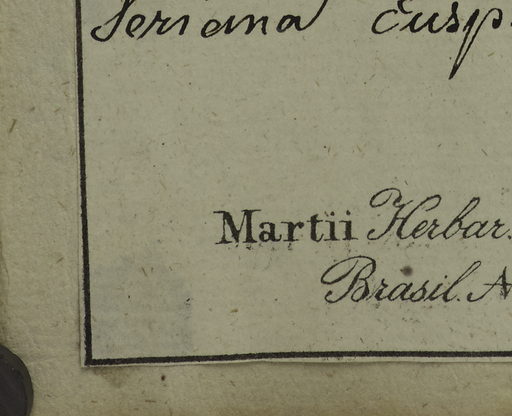 Seriana Cusp
Martii Herbar.
Brasil. N